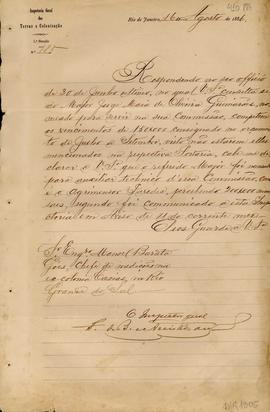 Inspectoria Geral
das
Terras e Colonisação
2ª Secção
Nº 785
Rio de Janeiro, 16 de Agosto de 1886.
Respondendo ao seo officio
de 26 de Junho ultimo, no qual Vª consulta si
ao Major Jorge Maia de Oliveira Guimarães, no-
meado para servir na sua Commissão, competem
os vencimentos de consignado no orçamen-
to de Junho a Setembro, visto não estarem elles
mencionados na respectiva Portaria, cabe-me de-
clarar a V. Sª que o referido Major foi no-
meado para auxiliar technico d'essa Commissão, com
o agrimensor percebendo
segundo foi communicado a esta Inspe-
ctoria em Aviso de 11 do corrente mez.
Deos Guarde a V. Sª
Sr. Engº Manoel Barata
Góes, Chefe da medições na
ex-colonia Caxias, no Rio
Grande do Sul
O Inspector geral